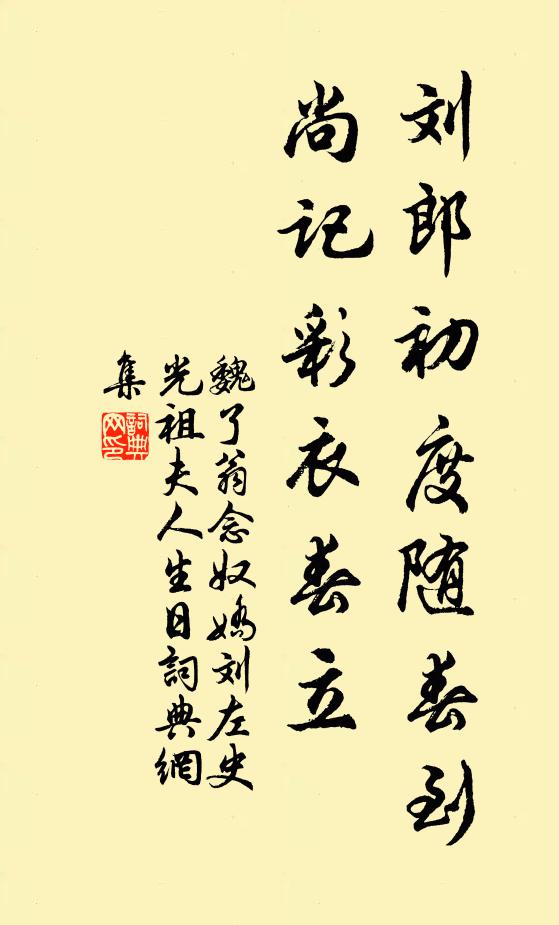 刘郎初度随春到
尚记彩衣春立
魏了翁念奴娇刘左史
光祖夫人生日詞典網
集
詞典网印